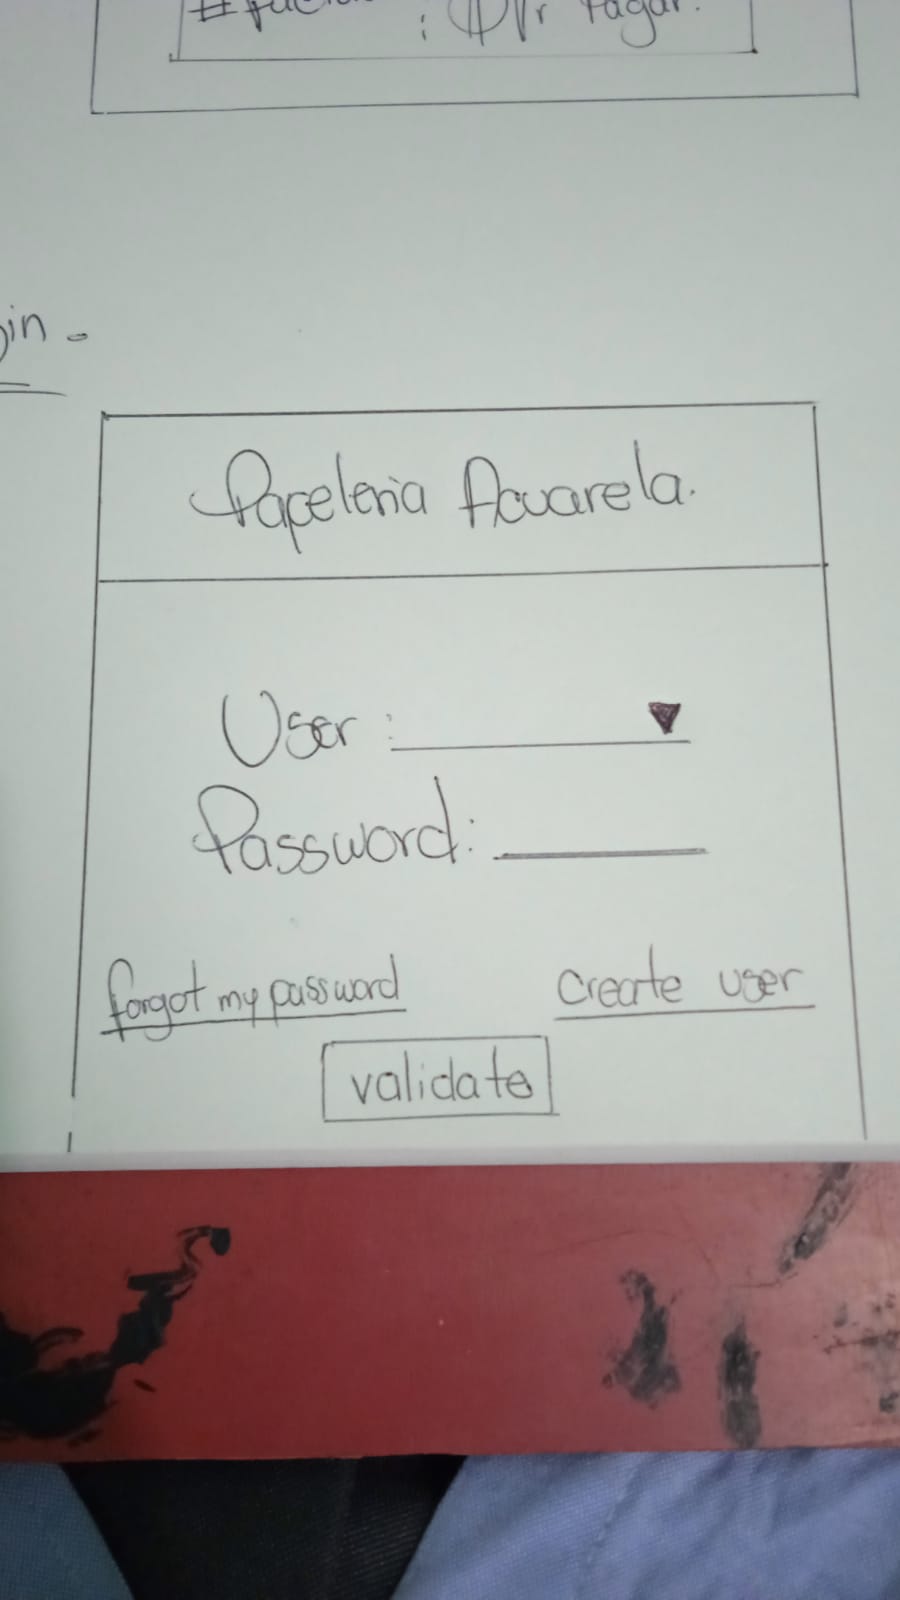 : Vr Pagar.
gin -
Papeleria Acuarela.
User :
Password:
forgot my password
Create user
validate